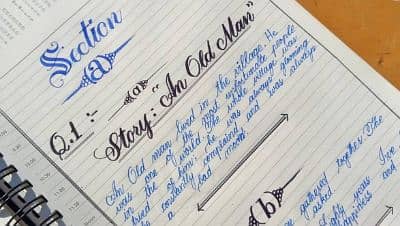 Section
(a)
Q.1 :-
(a)
Story: "An Old Man"
An Old man lived in the village. He
was one of the most unfortunate people
in the world. The whole village was
tired of him: he was always
constantly complaind and was always
a bad mood.
(b)
gathered together. The
asked
Eighty years I've
happiness and